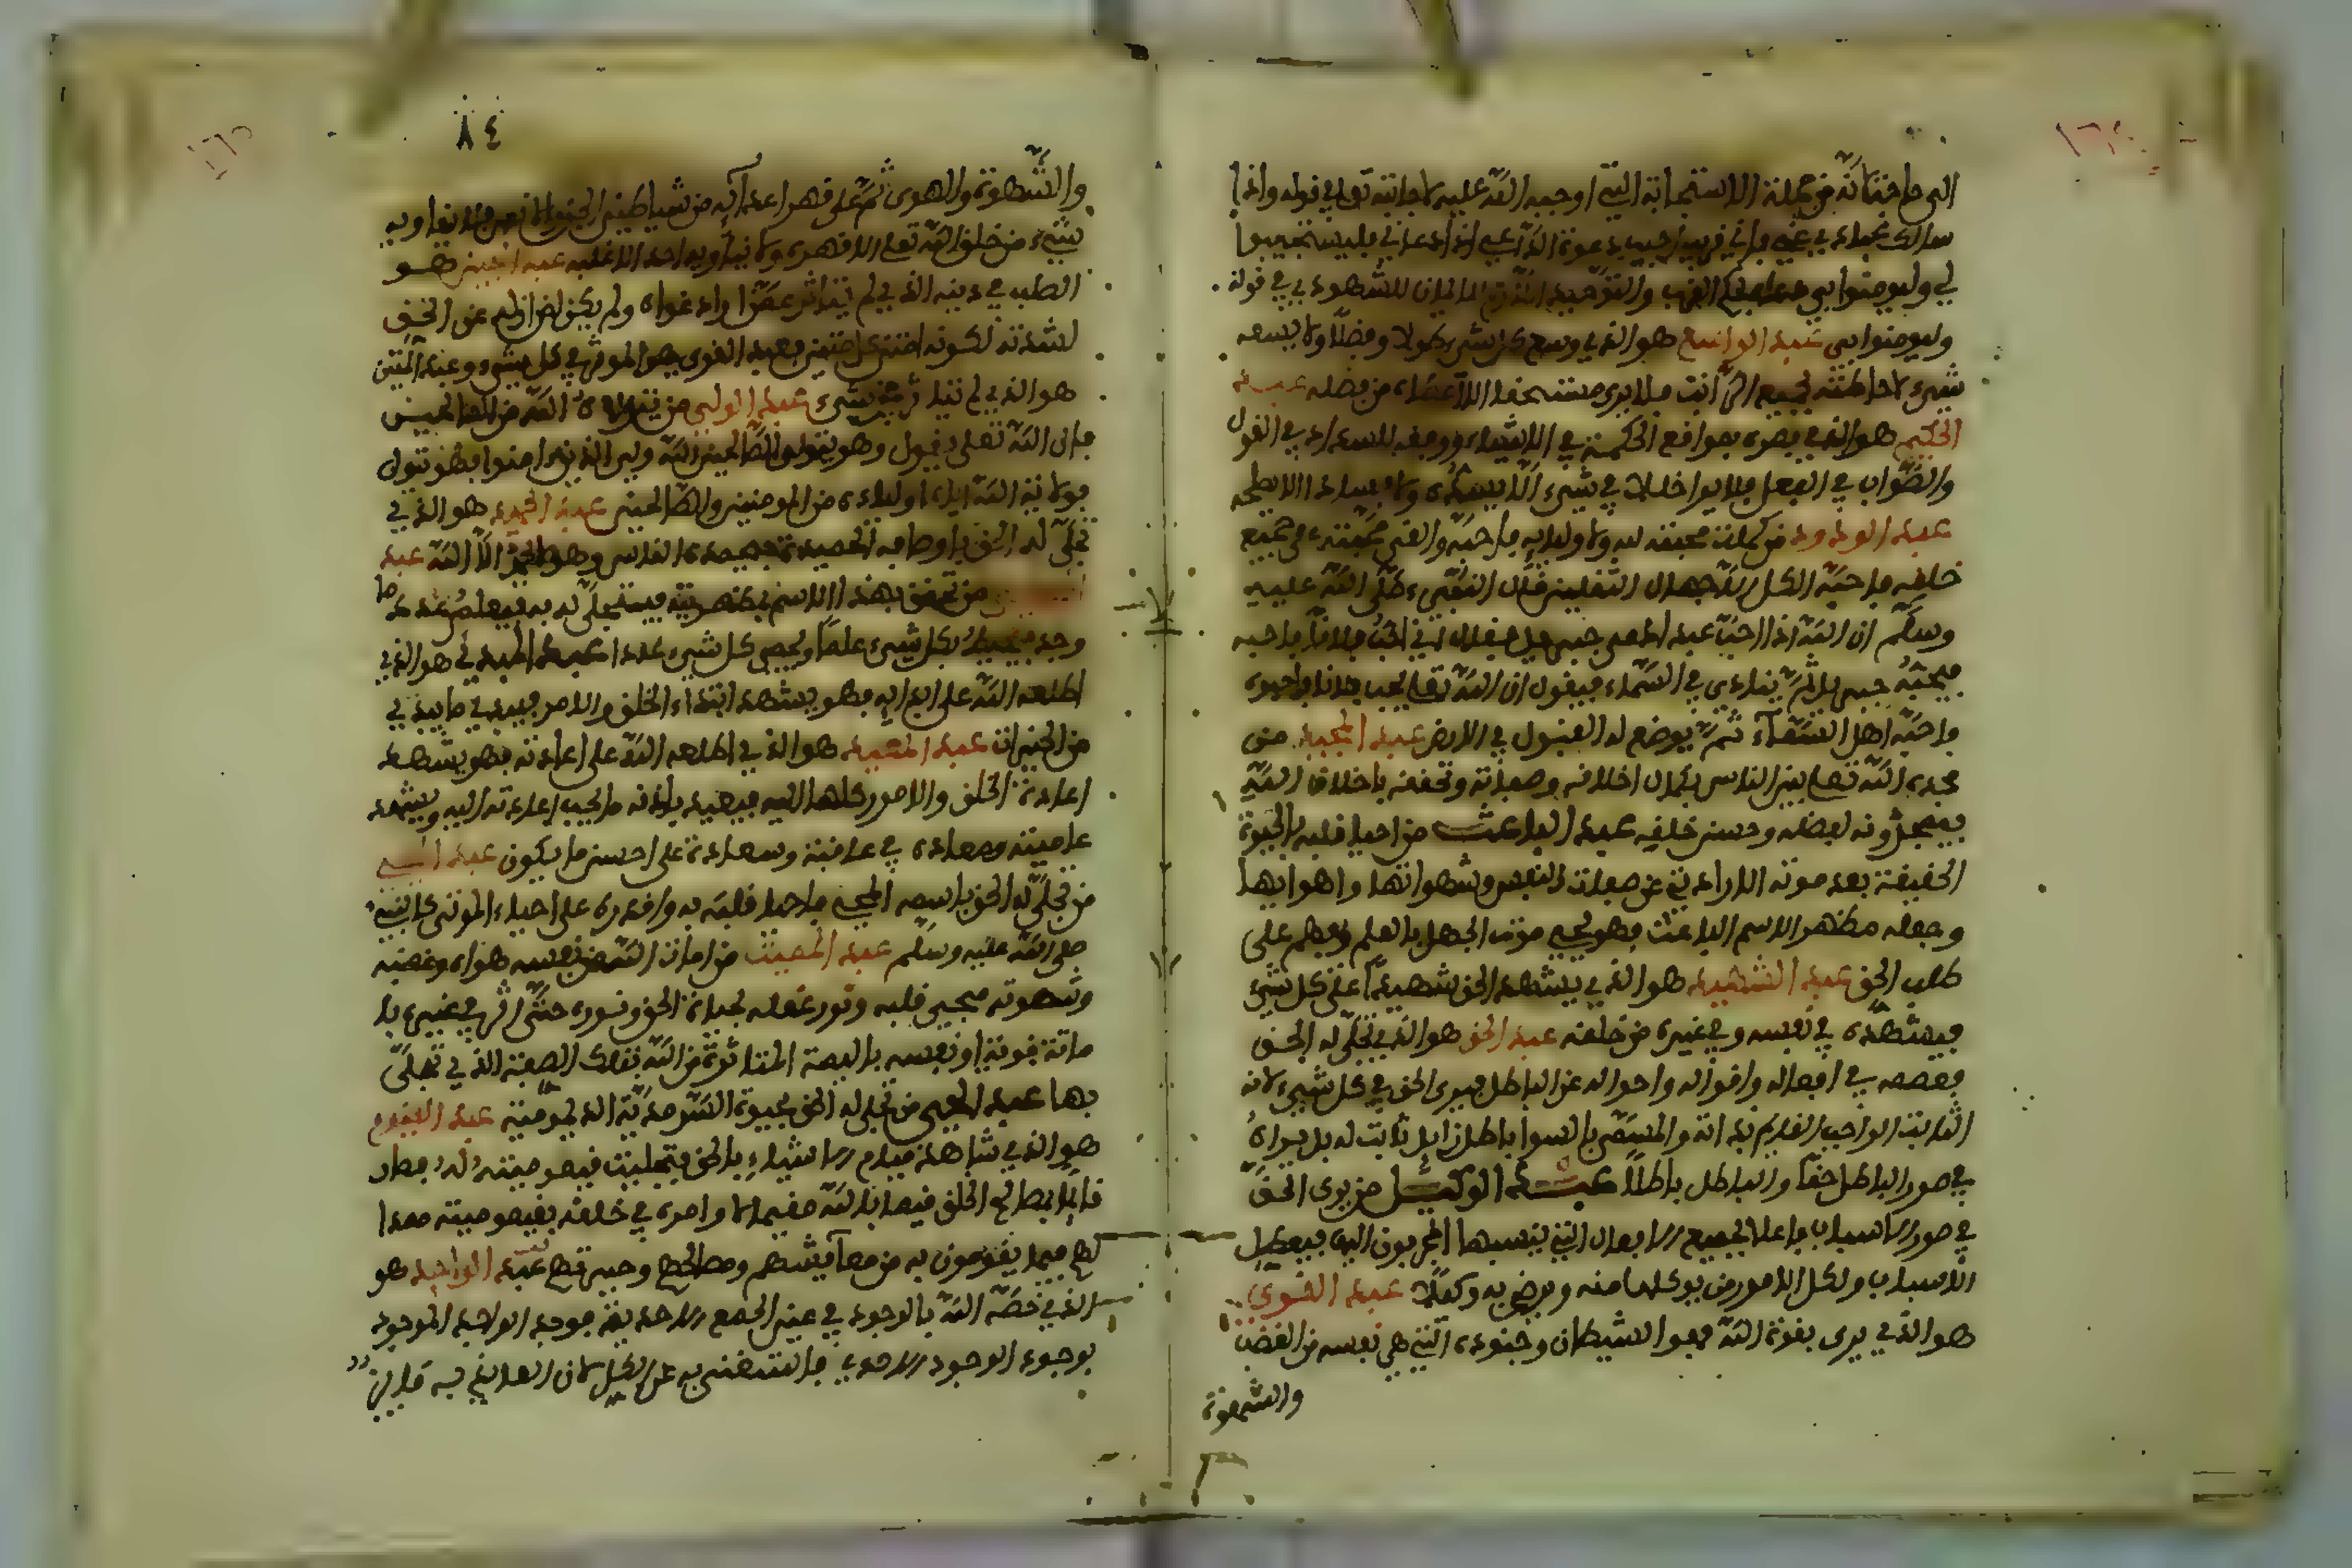 الى ما جنابه من جملة الاستجابة التي اوجبه الله عليه لاجابته تعالى في قوله واذا
سالك عبادي عني فاني قريب اجيب دعوة الداعي اذا دعاني فليستجيبوا
لي وليومنوا بي القرب والتوحيد اللازم للايمان للشهود في قوله
وليومنوا بي عبد الواسع هو الذي وسع كل شيء طولا وفضلا ولا يسعه
شيء لاحاطته بجميع المراتب فلا يرى مستحقا الا اعطاه من فضله عبد
الحكيم هو الذي بصره بمواقع الحكمة في الاشياء ووفقه للسداد في القول
والصواب في الفعل فلا يرا خللا في شيء الا يسده ولا فسادا الا يصلحه
عبد الودود من كملت محبته لله ولاوليايه فاحبه والقى محبته على جميع
خلقه فاحبه الكل الا جهال الثقلين قال النبيء صلى الله عليه
وسلم ان الله اذا احب عبدا دعى جبريل فقال اني احب فلانا فاحبه
فيحبه جبريل ثم ينادي في السماء فيقول ان الله تعالى يحب فلانا فاحبوه
فاحبه اهل السماء ثم يوضع له القبول في الارض عبد المجيد من
مجده الله تعالى بين الناس بكمال اخلاقه وصفاته وتحققه باخلاق الله
فيمجدونه لفضله وحسن خلقه عبد الباعث من احيا قلبه بالحيوة
الحقيقة بعد موته الارادي عن صفات النفس وشهواتها واهوايها
وجعله مظهر الاسم الباعث فهو يحيي موت الجهل بالعلم وبعثهم على
طلب الحق عبد الشهيد هو الذي يشهد الحق شهيدا على كل شيء
فيشهده في نفسه وفي غيره من خلقه عبد الحق هو الذي تجلى له الحق
فعصمه في افعاله واقواله واحواله عن الباطل فيرى الحق في كل شيء لانه
الثابت الواجب القايم بذاته والمسمى بالسوا باطل زايل ثابت له بل يراه
في صور الباطل حقا والباطل باطلا عبد الوكيل من يرى الحق
في صور الاسباب فاعلا لجميع الافعال التي ينسبها المحجوبون اليها فيعطل
الاسباب وتكل الامور من يوكلها منه ويرضى به وكيلا عبد القوي
هو الذي يرى بقوة الله قهر الشيطان وجنوده التي هي نفسه من الغضب
والشهوة
٨٤
والشهوة والهوى ثم على قهر اعدايه من شياطين الجن والانس فلا يقاويه
شيء من خلق الله تعالى الا قهره ولا يناويه احد الا غلبه عبد المتين هو
الصلب في دينه الذي لم يتاثر عمن اراد اغواه ولم يكن لمن ازله عن الحق
لشدته لكونه امتن كل متين فعبد القوي هو الموثر في كل شيء وعبد المتين
هو الذي لم يتاثر عن شيء عبد الولي من يتولاه الله من الصالحين
فان الله تعلى يقول وهو يتولى الصالحين الله ولي الذين امنوا فهو يتولى
بولاية الله اياه اولياءه من المومنين والصالحين عبد الحميد هو الذي
تجلى له الحق باوصافه الحميدة فيحمده الناس وهو لا يحمد الا الله عبد
من تحقق بهذا الاسم بمظهريته فيتجلى له به فيعلم عدد ما
وجد فيحيط بكل شيء علما ويحصي كل شيء عددا عبد المبدي هو الذي
اطلعه الله على ابدايه فهو يشهد ابتداء الخلق والامر فيبدي ما يبدي
من الخيرات عبد المعيد هو الذي اطلعه الله على اعادته فهو يشهد
اعادة الخلق والامور كلها اليه فيعيد باذنه ما يجب اعادته اليه ويشهد
عاقبته ومعاده في عافية وسعادة على احسن ما يكون عبد المحيي
من تجلى له الحق باسمه المحيي فاحيا قلبه به واقدره على احياء الموتى كالنبيء
صلى الله عليه وسلم عبد المميت من امات الله من نفسه هواه وغضبه
وشهوته فيحيى قلبه وتنور عقله بحياة الحق ونوره حتى اثر في غيره با
ماتة قوته او نفسه بالهمة المتاثرة من الله بتلك الصفة الذي تجلى
بها عبد الحي من تجلى له الحق بحيوة السرمدية الديمومية عبد القيوم
هو الذي شاهد قيام الاشياء بالحق فتجليت قيوميته له فصار
قايما بمصالح الخلق قيما بالله مقيما لاوامره في خلقه بقيوميته ممدا
لهم فيما يقومون به من معايشهم ومصالحهم وحيوتهم عبد الواجد هو
الذي خصه الله بالوجود في عين الجمع الاحدية فوجد الواجد الموجود
بوجود الوجود الاحدي فاستغنى به عن الكل لان الفايز به فايز